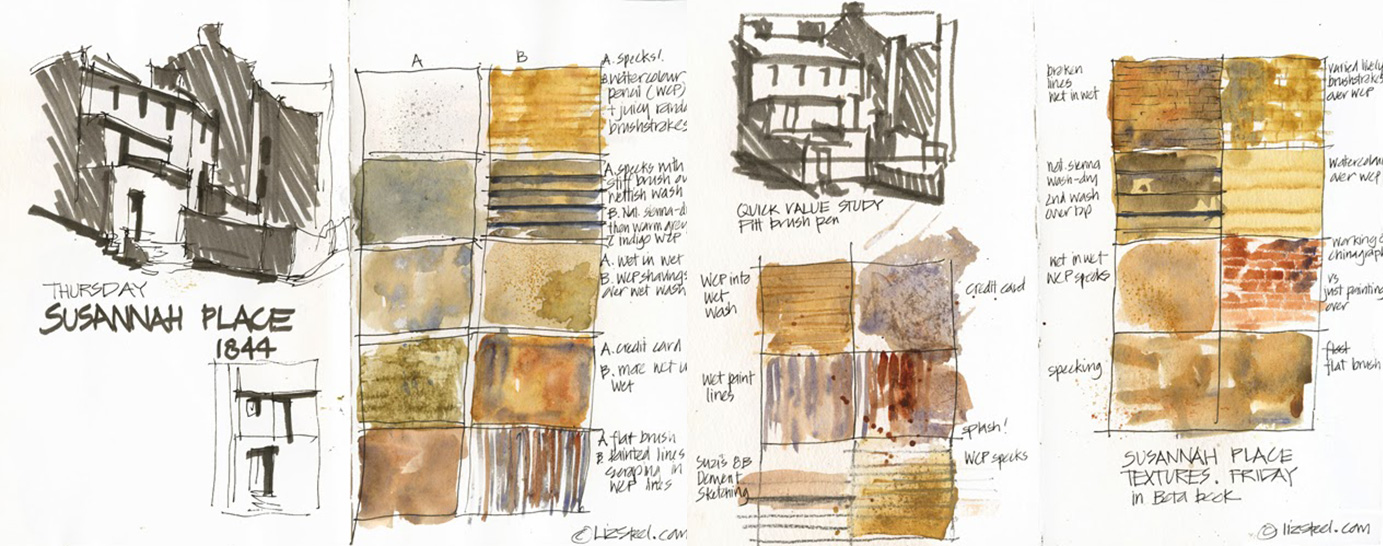 THURSDAY
SUSANNAH PLACE
1844
A
B
A. specks!
B. watercolour
pencil (WCP)
+ juicy
brushstrokes
A. specks with
stiff brush
wettish wash
B. Nat. sienna-
then warm grey
indigo WCP
A. wet in wet
B. WCP shavings
over wet wash
A. credit card
B. more wet in
wet
A flat brush
B painted lines
scraping in
WCP lines
©Lizsteel.com
QUICK VALUE STUDY
Pitt brush pen
WCP into
wet
wash
credit card
wet paint
lines
splash!
Suzi's 8B
Derwent
Sketching
WCP specks
broken
lines
wet in wet
varied lively
brushstrokes
over WCP
nat. sienna
wash-dry
2nd wash
over top
watercolour
over WCP
wet in wet
WCP specks
working
chinagraph
vs
just painting
over
specking
flat brush
SUSANNAH PLACE
TEXTURES. FRIDAY
in Beta book
© lizsteel.com